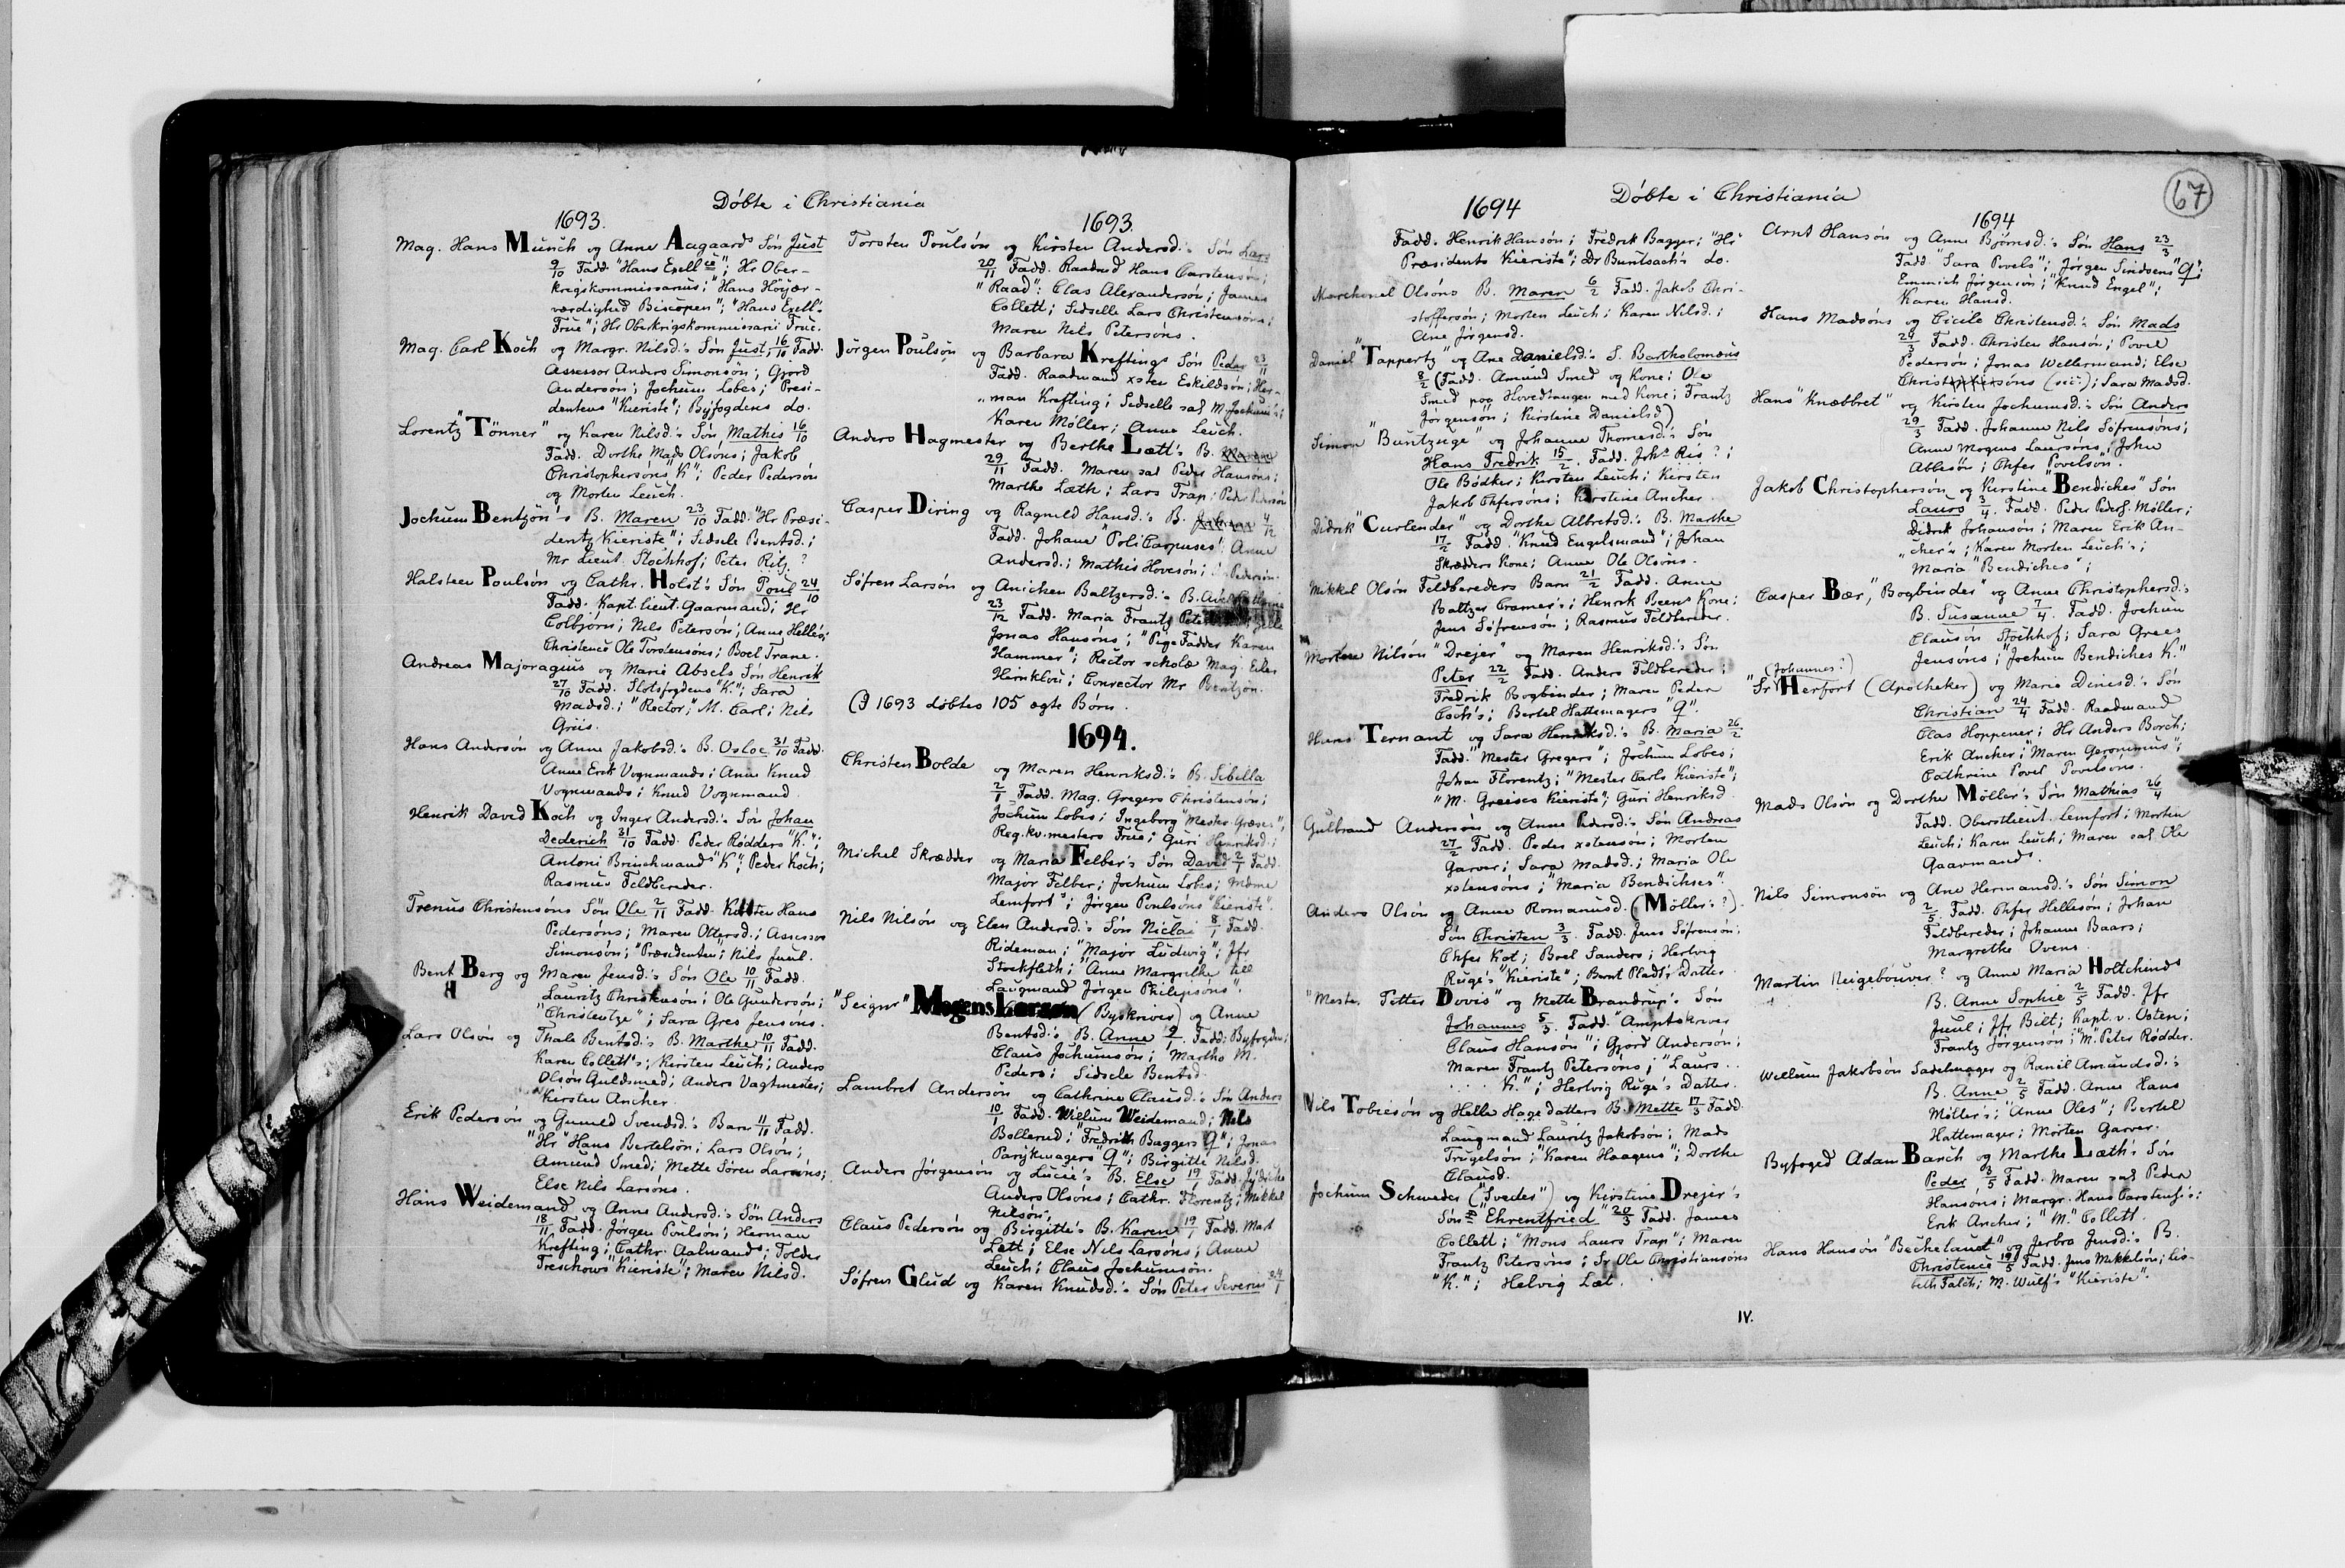 Döbte i Christiania
1693.
Mag. Hans Munch og Anne Aagaards Sön Just
9/10 Fadd "Hans Exell ce"; Hr Ober-
krigskommissarius; "Hans Höyær-
værdighed Biscopen"; "Hans Exell's
Frue"; Hr Oberkrigskommissarii Frue.
Mag. Carl Koch og Margr. Nilsd.'s Sön Just, 16/10 Fadd.
Assessor Anders Simonsön; Gjord
Andersön; Jochum Lobes; Presi-
dentens "Kieriste"; Byfogdens do.
Lorentz "Tönner" og Karen Nilsd.'s Sön Mathis 16/10
Fadd. Dorthe Mads Olsöns; Jakob
Christophersöns "K"; Peder Pedersön
og Morten Leuch.
Jochum Bentzön's B. Maren 23/10 Fadd. "Hr Præsi-
dentz Kieriste"; Sidsele Bentsd.;
Mr Lieut. Stockhof; Peter Ritz.?
Halsteen Poulsön og Cathr. Holst's Sön Poul 24/10
Fadd. Kapt. lieut. Gaarmand; Hr
Colbjörn; Nils Petersön; Anne Helles;
Christence Ole Torstensöns; Boel Trane.
Andreas Majoragius og Marie Absels Sön Henrik
27/10 Fadd. Slotsfogdens "K."; Sara
Madsd.; "Rector," M. Carl; Nils
Griis.
Hans Andersön og Anne Jakobsd.'s B. Osloe 31/10 Fadd.
Anne Erik Vognmands; Anne Knud
Vognmands; Knud Vognmand
Henrik David Koch og Inger Andersd.'s Sön Johan
Dederich 31/10 Fadd. Peder Rödders "K.";
Antoni Brinchmands "K"; Peder Koch;
Rasmus Feldbereder.
Trenus Christensöns Sön Ole 2/11 Fadd. Karsten Hans
Pedersöns; Maren Ottersd.; Assessor
Simonsön; "Præsidenten"; Nils Juul.
Bent Berg og Maren Jensd.'s Sön Ole 10/11 Fadd.
Lauritz Christensön; Ole Gundersön;
"Christentze"; Sara Gres Jensöns.
Lars Olsön og Thale Bentsd.'s B. Marthe 10/11 Fadd.
Karen Collett's; Kirsten Leuch; Anders
Olsön Guldsmed; Anders Vagtmester;
Kirsten Ancher.
Erik Pedersön og Gunild Svendsd.'s Barn 11/11 Fadd.
"Hr" Hans Bertelsön; Lars Olsön;
Amund Smed; Mette Sören Larsöns;
Else Nils Larsöns.
Hans Weidemand og Anne Andersd.'s Sön Anders
18/11 Fadd. Jörgen Poulsön; Herman
Krefting; Cathr. Aalmands; Tolder
Treschows "Kieriste"; Maren Nilsd.
1693.
Torsten Poulsön og Kirsten Andersd.'s Sön Lars
20/11 Fadd. Raadmd Hans Carstensön;
"Raad": Clas Alexandersön; James
Collett; Sidselle Lars Christensöns;
Maren Nils Petersöns.
Jörgen Poulsön og Barbara Kreftings Sön Peder 23/11
Fadd. Raadmand xsten Eskildsön; Her-
"man Krefting; Sidselle sal M. Jochum's;
Karen Möller; Anne Leuch.
Anders Hagmester og Berthe Lætt's B.
29/11 Fadd. Maren sal Peder Hansöns;
Marthe Læth; Lars Trap; Peder Pedersön
Casper Diring og Ragnild Hansd.'s B. 4/12
Fadd. Johane PoliCarpuses; Anne
Andersd.; Mathis Hovesön; Pedersön.
Söfren Larsön og Anichen Baltzersd.'s B.
23/12 Fadd. Maria Frantz
Jonas Hansöns; "Pige Fadder Karen
Hammer"; Rector scholæ Mag. Elias
Hirnklou; Conrector Mr Bentzön.
(I 1693 döbtes 105 ægte Börn.
1694.
Christen Bolde og Maren Henriksd.'s B. Sibella
2/1 Fadd. Mag. Gregers Christensön;
Jochum Lobes; Ingeborg "Mester Græses";
Reg. kv. mesters Frue; Guri Henriksd.;
Michel Skrædder og Maria Felber's Sön David 2/1 Fadd.
Major Felber; Jochum Lobes; Mdme
Lemfort"; Jörgen Poulsöns "Kieriste".
Nils Nilsön og Elen Andersd.'s Sön Niclai 8/1 Fadd.
Rideman; "Major Ludwig"; Jfr
Stockfleth; "Anne Margrethe till
Laugmand Jörgen Philipsöns".
"Seignr" Mogens Larsön (Byskriver) og Anne
Bentsd.'s B. Anne 9/ Fadd: Byfogden;
Claus Jochumsön; Marthe M.
Peders; Sidsele Bentsd.
Lambret Andersön og Cathrine Clausd.'s Sön Anders
10/1 Fadd. Willum Weidemand; Nils
Bollerud; "Fredrich Baggers Q"; Jonas
Parykmagers "Q"; Birgitte Nilsd.
Anders Jörgensön og Lucie's B. Else 19/1 Fadd.
Anders Olsöns; Cathr. Florentz; Mikkel
Nilsön;
Claus Pedersön og Birgitte's B. Karen 19/1 Fadd. Mad
Lætt; Else Nils Larsöns; Anne
Leuch; Claus Jochumsön.
Söfren Glud og Karen Knudsd.'s Sön Peter Severin 24/1
67
Döbte i Christiania
1694
Fadd. Henrik Hansön; Fredrik Bagger; "Hr
Præsidents Kieriste"; Dr Buntsach's do.
Olsöns B. Maren 6/2 Fadd. Jakob Chri-
stoffersön; Morten Leuch; Karen Nilsd.;
Ane Jörgensd.
Daniel "Tappertz" og Ane Danielsd.'s S. Bartholomæus
8/2 (Fadd. Amund Smed og Kone; Ole
Smed paa Hovedtangen med Kone; Frantz
Jörgensön; Kirstine Danielsd)
Simon "Buntzuge" og Johanne Thomesd.'s Sön
Hans Fredrik 15/2. Fadd. Johs Ris?;
Ole Bödker; Kirsten Leuch; Kirsten
Jakob Chfersöns; Kirstine Ancher.
Didrik "Curlender" og Dorthe Albretsd.'s B. Marthe
17/2 Fadd. "Knud Engelsmand"; Johan
Skrædders Kone; Anne Ole Olsöns.
Mikkel Olsön Feldbereders Barn 21/2 Fadd. Anne
Baltzer Cramer's; Henrik Beens Kone;
Jens Söfrensön; Rasmus Feldbereder.
Morten Nilsön "Drejer" og Maren Henriksd.'s Sön
Peter 22/2 Fadd. Anders Feldbereder;
Fredrik Bogbinder; Maren Peder
Coch's; Bertel Hattemagers "Q".
Hans Ternant og Sara Henriksd.'s B. Maria 26/2
Fadd. "Mester Gregers"; Jochum Lobes;
Johan Florentz; "Mester Carls Kieriste";
"M. Greises Kieriste"; Guri Henriksd
Gulbrand Andersön og Anne Pedersd.'s Sön Andreas
27/2 Fadd. Peder xstensön; Morten
Garver; Sara Madsd.; Maria Ole
xstensöns; "Maria Bendichses".
Anders Olsön og Anne Romanusd. (Möller's?)
Sön Christen 3/3. Fadd. Jens Söfrensön;
Chfer Kot; Boel Sanders; Hertvig
Ruge's "Kieriste"; Bernt Pladt's Datter.
"Mester Petter Dovis" og Mette Brandrup's Sön
Johannes 5/3. Fadd. "Amptskriver
Claus Hansön"; Gjord Andersön;
Maren Frantz Petersöns; "Laurs . .
. . . K."; Hertvig Ruge's Datter.
Nils Tobiesön og Helle Hagedatters B. Mette 17/3 Fadd.
Laugmand Lauritz Jakobsön; Mads
Trugelsön; "Karen Haagens"; Dorthe
Clausd.
Jochum Schweder ("Sveder") og Kirstine Drejer's
Sön "Ehrentfried" 20/3 Fadd. James
Collett; "Mons Laurs Trap"; Maren
Frantz Petersöns; Sr Ole Christiansöns
"K."; Helvig Læt.
1694
Arnt Hansön og Anne Björnsd.'s Sön Hans 23/3
Fadd. "Sara Povels"; Jörgen Sindsens "Q";
Emmich Jörgensön; "Knud Engel";
Karen Hansd.
Hans Madsöns og Cicile Christensd.'s Sön Mads
24/3 Fadd. Christen Hansön; Povel
Pedersön; Jonas Wellermand; Else
(sic!); Sara Madsd.
Hans "Knæbbret" og Kirsten Jochumsd.'s Sön Anders
29/3 Fadd. Johanne Nils Söfrensöns;
Anne Mogens Laursöns; John
Abbesön; Chfer "Povelsön".
Jakob Christophersön og Kirstine "Bendiches" Sön
Laurs 3/4. Fadd. Peder Peders. Möller;
Didrik Johansön; Maren Erik An-
"cher's; Karen Morten Leuch's;
Maria "Bendiches";
Casper Bær, "Bogbinder" og Anne Christophersd.'s
B. Susanne 7/4. Fadd. Jochum
Clausön Stockhof; Sara Grees
Jensöns; "Jochum Bendiches K."
(Johannes?)
"Sr Herfort (Apotheker) og Marie Dinesd.'s Sön
Christian 24/4 Fadd. Raadmand
Clas Hoppener; Hr Anders Borch;
Erik Ancher; "Maren Geronimus";
Cathrine Povel Povelsöns.
Mads Olsön og Dorthe Möller's Sön Mathias 26/4
Fadd. Oberstlieut. Lemfort; Morten
Leuch; Karen Leuch; Maren sal Ole
Gaarmands.
Nils Simonsön og Ane Hermansd.'s Sön Simon
2/5. Fadd. Chfer Hellesön; Johan
Feldbereder; Johanne Baars;
Margrethe Ovens.
Martin Reigebouver? og Anne Maria Holtchinds
B. Anne Sophie 2/5 Fadd. Jfr
Juul; Jfr Bilt; Kapt. v. Osten;
Frantz Jörgensön; "M." Peter Rödder.
Wellum Jakobsön Sadelmager og Ranil Amundsd.'s
B. Anne 2/5 Fadd. Anne Hans
Möller's; "Anne Oles"; Bertel
Hattemager; Morten Garver.
Byfoged Adam Barch og Marthe Læth's Sön
Peder 3/5 Fadd. Maren sal Peder
Hansöns; Margr. Hans Carstens.'s;
Erik Ancher; "M." Collett.
Hans Hansön "Bechelaud" og Jerbro Jensd.'s B.
Christence 19/5 Fadd. Jens Mikkelsön; Lis-
beth Falch; M. Wulf's "Kieriste".
IV.